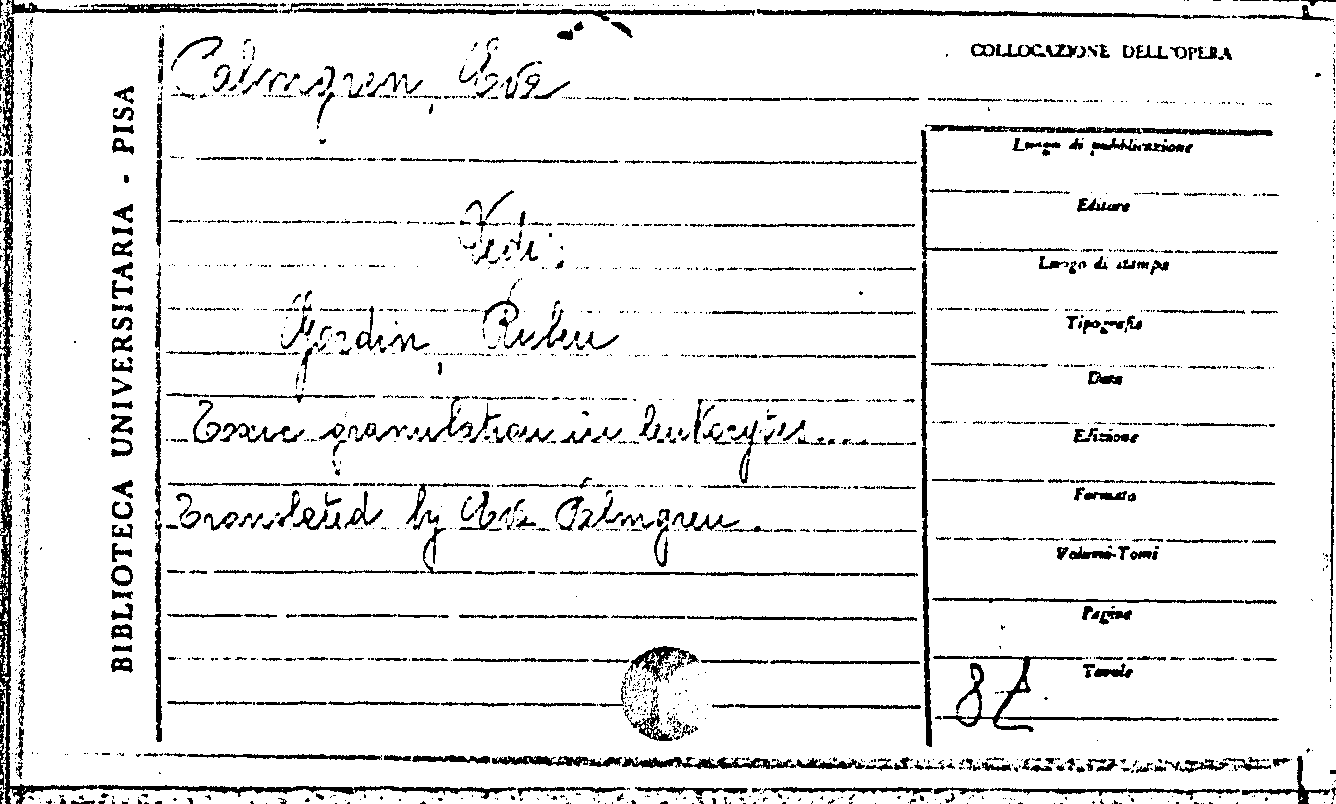 BIBLIOTECA UNIVERSITARIA - PISA
Palmgren, Eva
Vedi:
Gordin, Ruben
Toxic granulation in leukocytes....
Translated by Eva Palmgren.
COLLOCAZIONE DELL'OPERA
Luogo di pubblicazione
Editore
Luogo di stampa
Tipografia
Data
Edizione
Formato
Volumi-Tomi
Pagine
Tavole